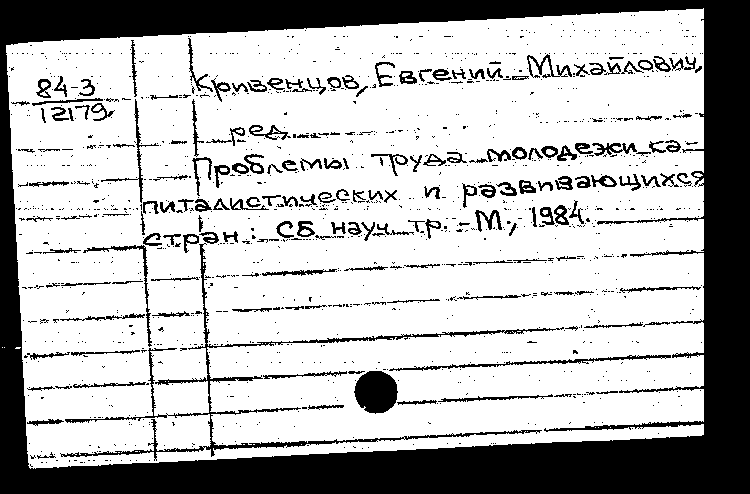 84-3
12179.
Кривенцов, Евгений Михайлович,
ред.
Проблемы труда молодежи ка-
питалистических и развивающихся
стран: Сб. науч. тр. - М., 1984.